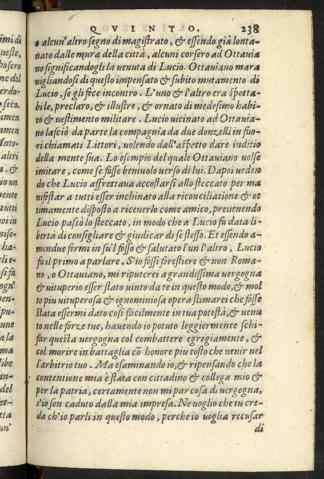 QVINTO. 238
o alcun'altro segno di magistrato, & essendo già lonta-
nato dalle mura della città, alcuni corsero ad Ottauia
no significandogli la uenuta di Lucio. Ottauiano mara
uigliandosi di questo impensato & subito mutamento di
Lucio, se gli fece incontro. L'uno & l'altro era spetta-
bile, preclaro, & illustre, & ornato di medesimo habi
to & uestimento militare. Lucio uicinato ad Ottauia-
no lasciò da parte la compagnia da due donzelli in fuo-
ri chiamati Littori, uolendo dall'aspetto dare inditio
della mente sua. Lo esempio del quale Ottauiano uolse
imitare, come se fosse beniuolo uerso di lui. Dapoi ueden
do che Lucio affrettaua accostarsi allo steccato per ma
nifestar a tutti esser inchinato alla riconciliatione & ot
timamente disposto a riceuerlo come amico, preuenendo
Lucio passò lo steccato, in modo che a Lucio fu data li-
bertà di consigliare & giudicar di se stesso. Et essendo a-
mendue fermi in su'l fosso & salutato l'un l'altro, Lucio
fu il primo a parlare. S'io fossi forestiere & non Roma-
no, o Ottauiano, mi riputerei a grandissima uergogna
& uituperio esser stato uinto da te in questo modo, & mol
to piu uituperosa & ignominiosa opera stimarei che fosse
stata essermi dato così facilmente in tua potestà, & uenu
to nelle forze tue, hauendo io potuto leggiermente schi-
far questa uergogna col combattere egregiamente, &
col morire in battaglia cō honore piu tosto che uenir nel
l'arbitrio tuo. Ma esaminando io, & ripensando che la
contentione mia è stata con cittadino & collega mio &
per la patria, certamente non mi par cosa di uergogna,
s'io son caduto dalla mia impresa. Ne uoglio che tu cre-
da ch'io parli in questo modo, perche io uoglia recusar
di